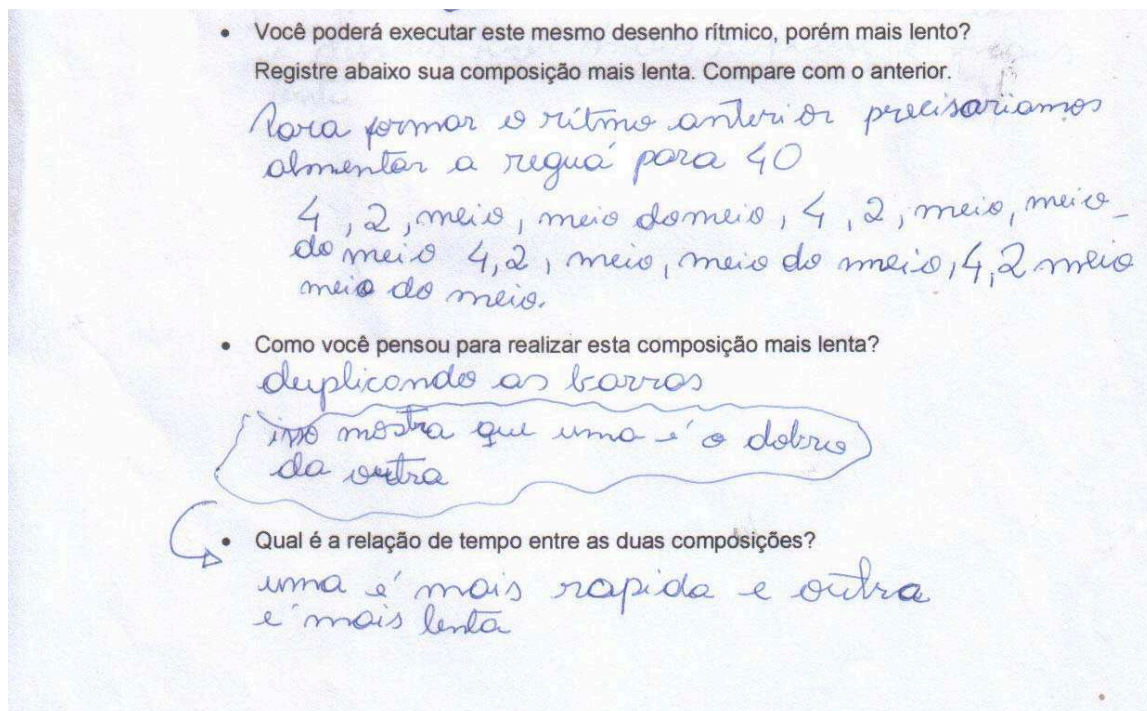 • Você poderá executar este mesmo desenho rítmico, porém mais lento?
Registre abaixo sua composição mais lenta. Compare com o anterior.
Para formar o ritmo anterior precisariamos
almentar a reguá para 40
4, 2, meio, meio do meio, 4, 2, meio, meio
do meio 4, 2, meio, meio do meio, 4, 2 meio
meio do meio.
• Como você pensou para realizar esta composição mais lenta?
duplicando as barras
isso mostra que uma é o dobro
da outra
• Qual é a relação de tempo entre as duas composições?
uma é mais rapida e outra
é mais lenta